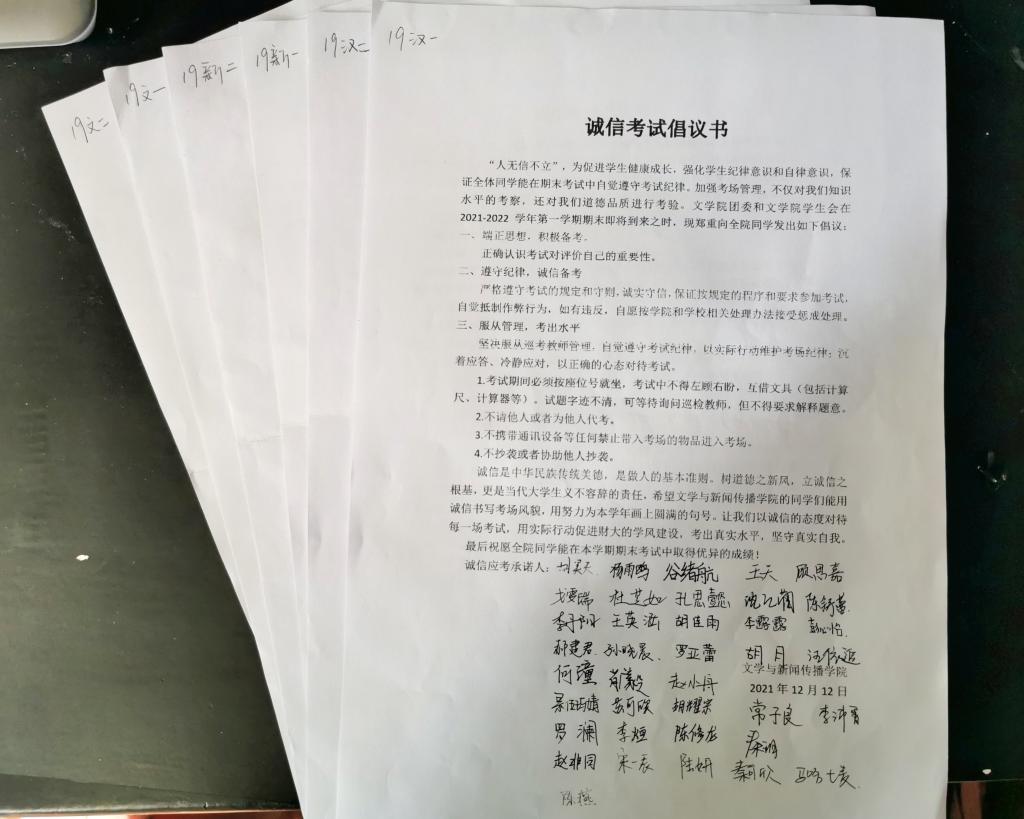 19文二
19文一
19新二
19新一
19汉二
19汉一
诚信考试倡议书
“人无信不立”，为促进学生健康成长，强化学生纪律意识和自律意识，保
证全体同学能在期末考试中自觉遵守考试纪律。加强考场管理，不仅对我们知识
水平的考察，还对我们道德品质进行考验。文学院团委和文学院学生会在
2021-2022 学年第一学期期末即将到来之时，现郑重向全院同学发出如下倡议：
一、端正思想，积极备考。
正确认识考试对评价自己的重要性。
二、遵守纪律，诚信备考
严格遵守考试的规定和守则，诚实守信，保证按规定的程序和要求参加考试，
自觉抵制作弊行为，如有违反，自愿按学院和学校相关处理办法接受惩戒处理。
三、服从管理，考出水平
坚决服从巡考教师管理，自觉遵守考试纪律，以实际行动维护考场纪律；沉
着应答、冷静应对，以正确的心态对待考试。
1.考试期间必须按座位号就坐，考试中不得左顾右盼，互借文具（包括计算
尺、计算器等）。试题字迹不清，可等待询问巡检教师，但不得要求解释题意。
2.不请他人或者为他人代考。
3.不携带通讯设备等任何禁止带入考场的物品进入考场。
4.不抄袭或者协助他人抄袭。
诚信是中华民族传统美德，是做人的基本准则。树道德之新风，立诚信之
根基，更是当代大学生义不容辞的责任，希望文学与新闻传播学院的同学们能用
诚信书写考场风貌，用努力为本学年画上圆满的句号。让我们以诚信的态度对待
每一场考试，用实际行动促进财大的学风建设，考出真实水平，坚守真实自我。
最后祝愿全院同学能在本学期期末考试中取得优异的成绩！
诚信应考承诺人：胡昊天 杨雨鸣 谷绪航 王天 顾思嘉
杜芝如 孔思懿
李丹阳 王英滋 胡佳雨 李露露 彭心怡
郝建君 孙晓晨 罗亚蕾 胡月
文学与新闻传播学院
何瞳 肖毅 赵小丹
2021年12月12日
岳可欣 胡耀宗 常子良 李沛霄
罗澜 李烜 陈修龙
赵非同 宋一辰 陆妍 秦可欣
陈燕